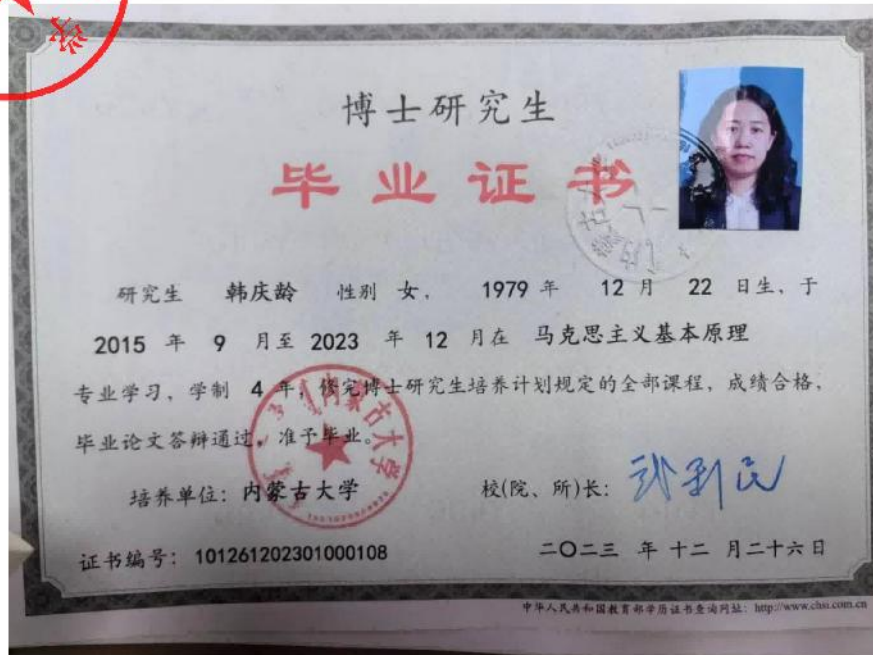 博士研究生
毕业证书
研究生 韩庆龄 性别 女， 1979 年 12 月 22 日生、于
2015 年 9 月至 2023 年 12 月在 马克思主义基本原理
专业学习，学制 4 年，修完博士研究生培养计划规定的全部课程，成绩合格，
毕业论文答辩通过，准予毕业。
内蒙古大学
培养单位：内蒙古大学 校(院、所)长：
证书编号：101261202301000108 二〇二三 年 十二 月二十六日
中华人民共和国教育部学历证书查询网址：http://www.chsi.com.cn